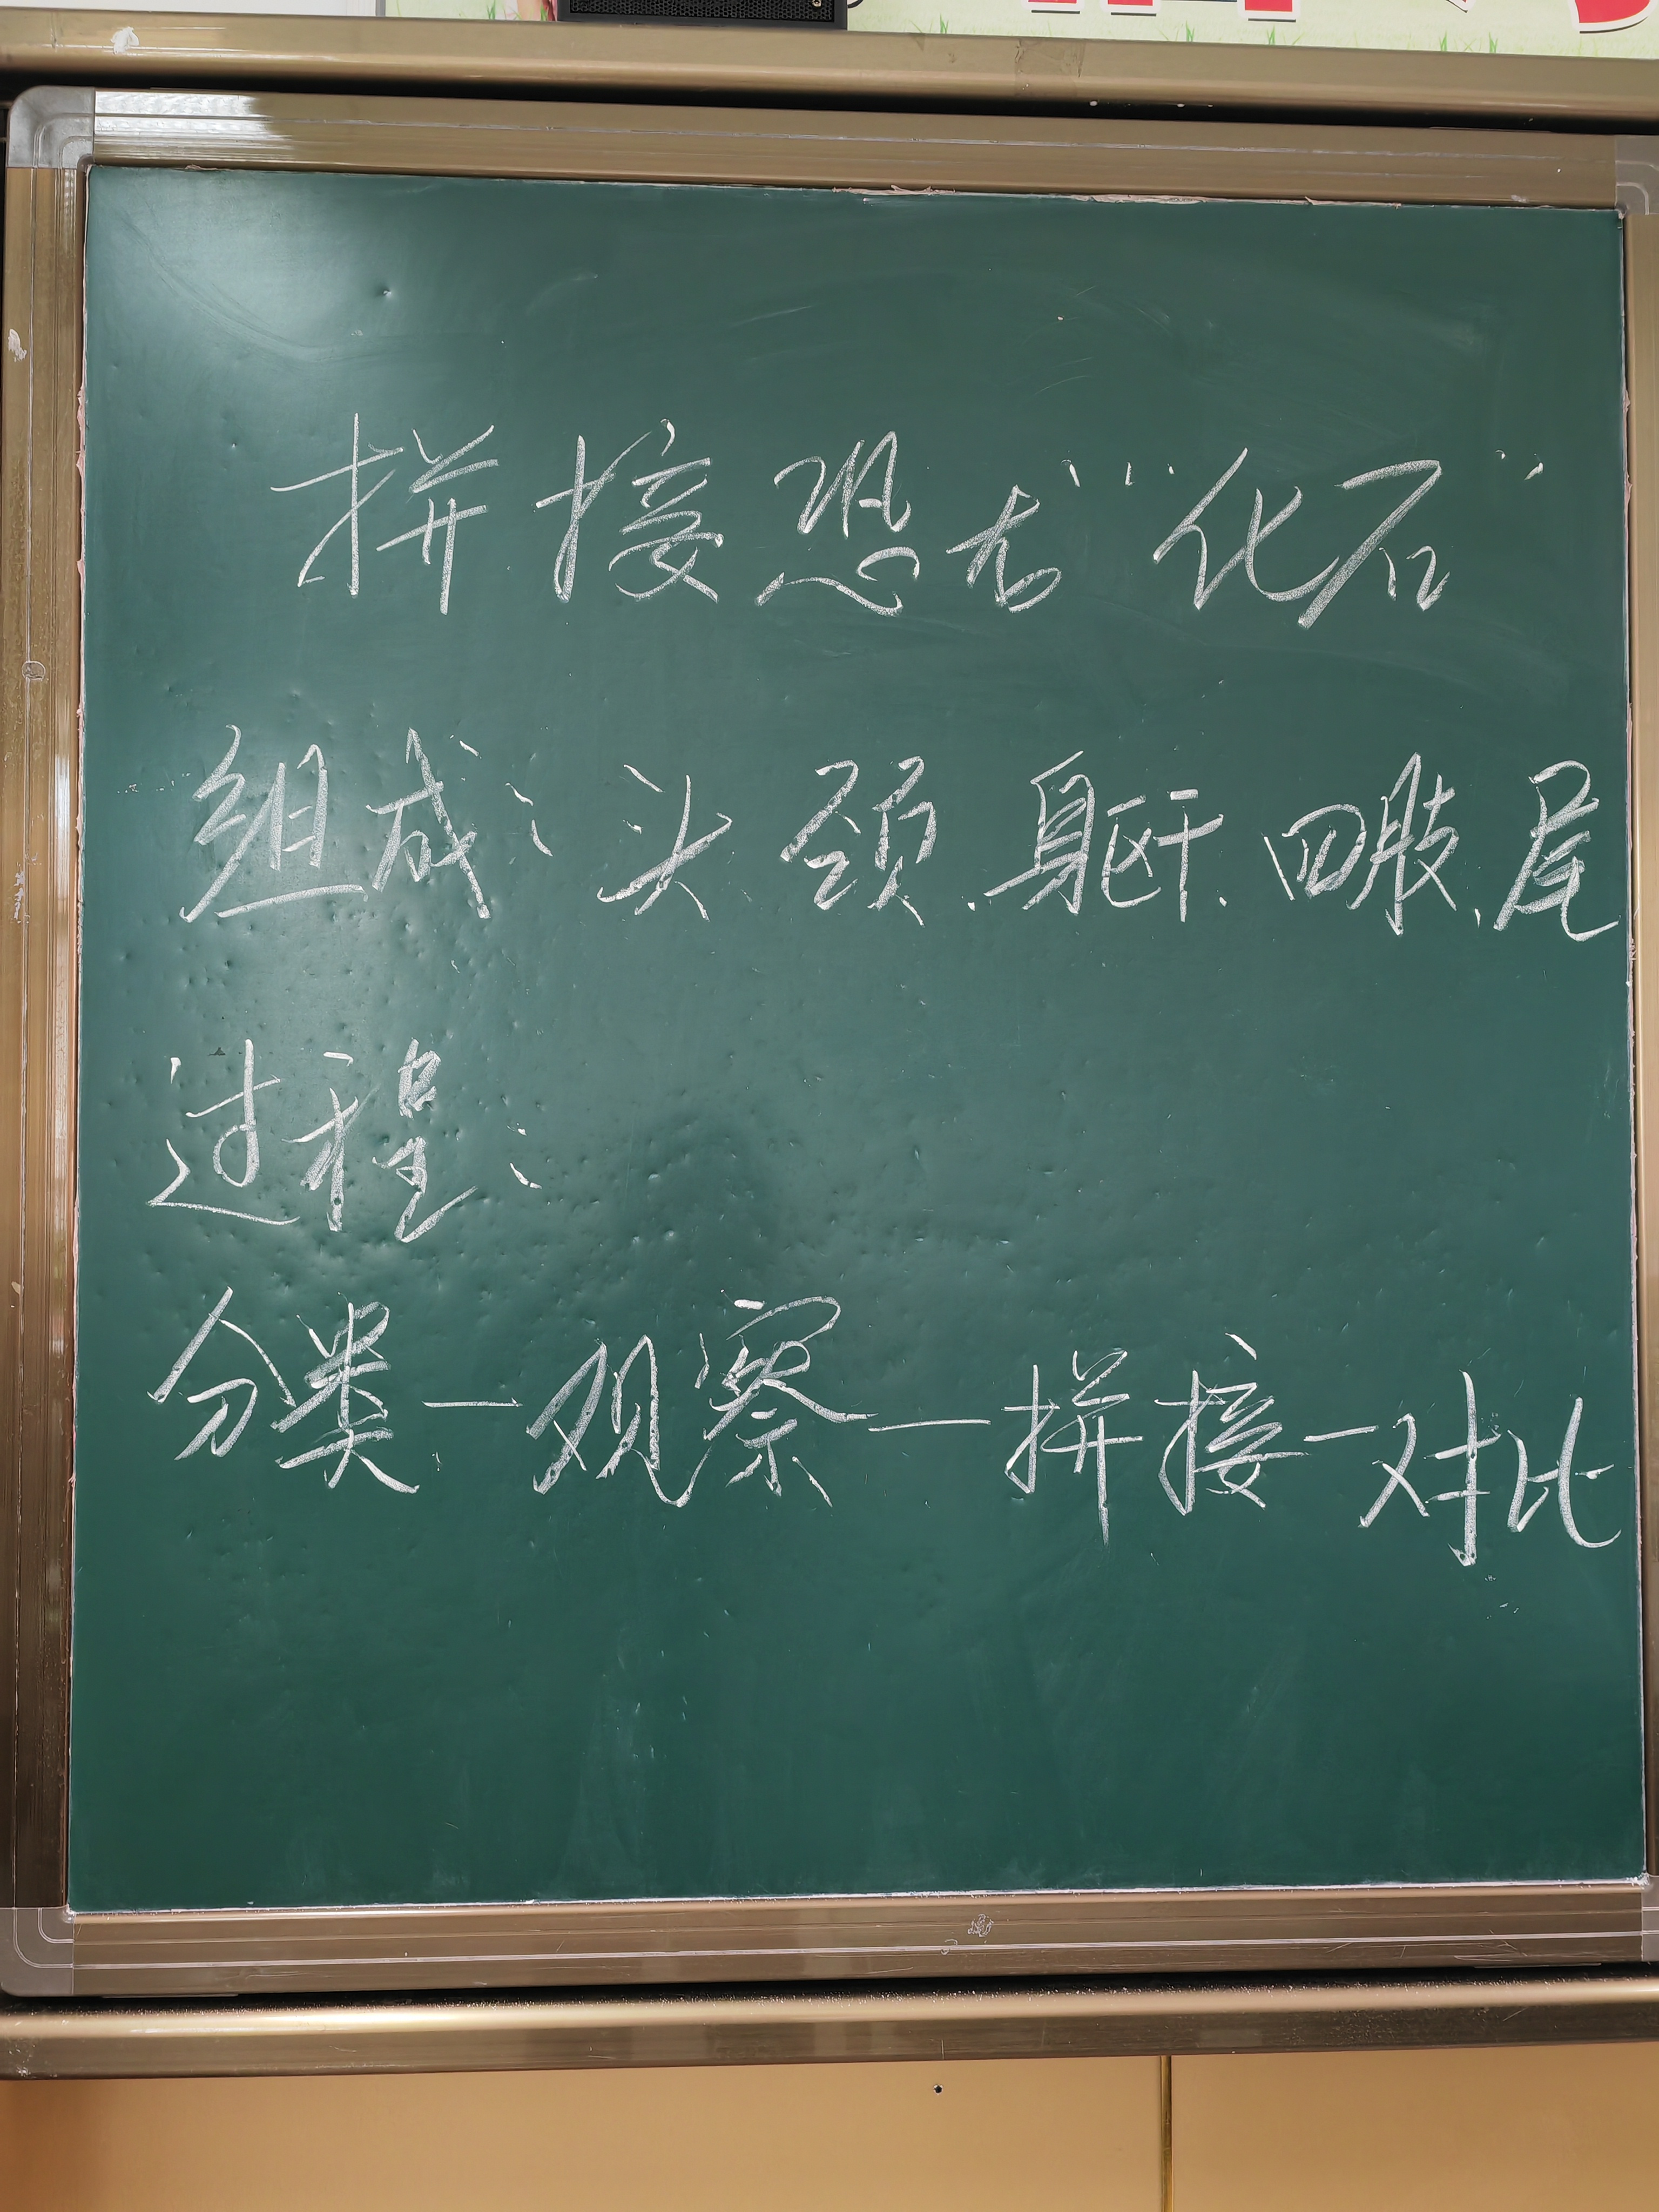 拼接恐龙“化石”
组成：头、颈、躯干、四肢、尾
过程：
分类—观察—拼接—对比